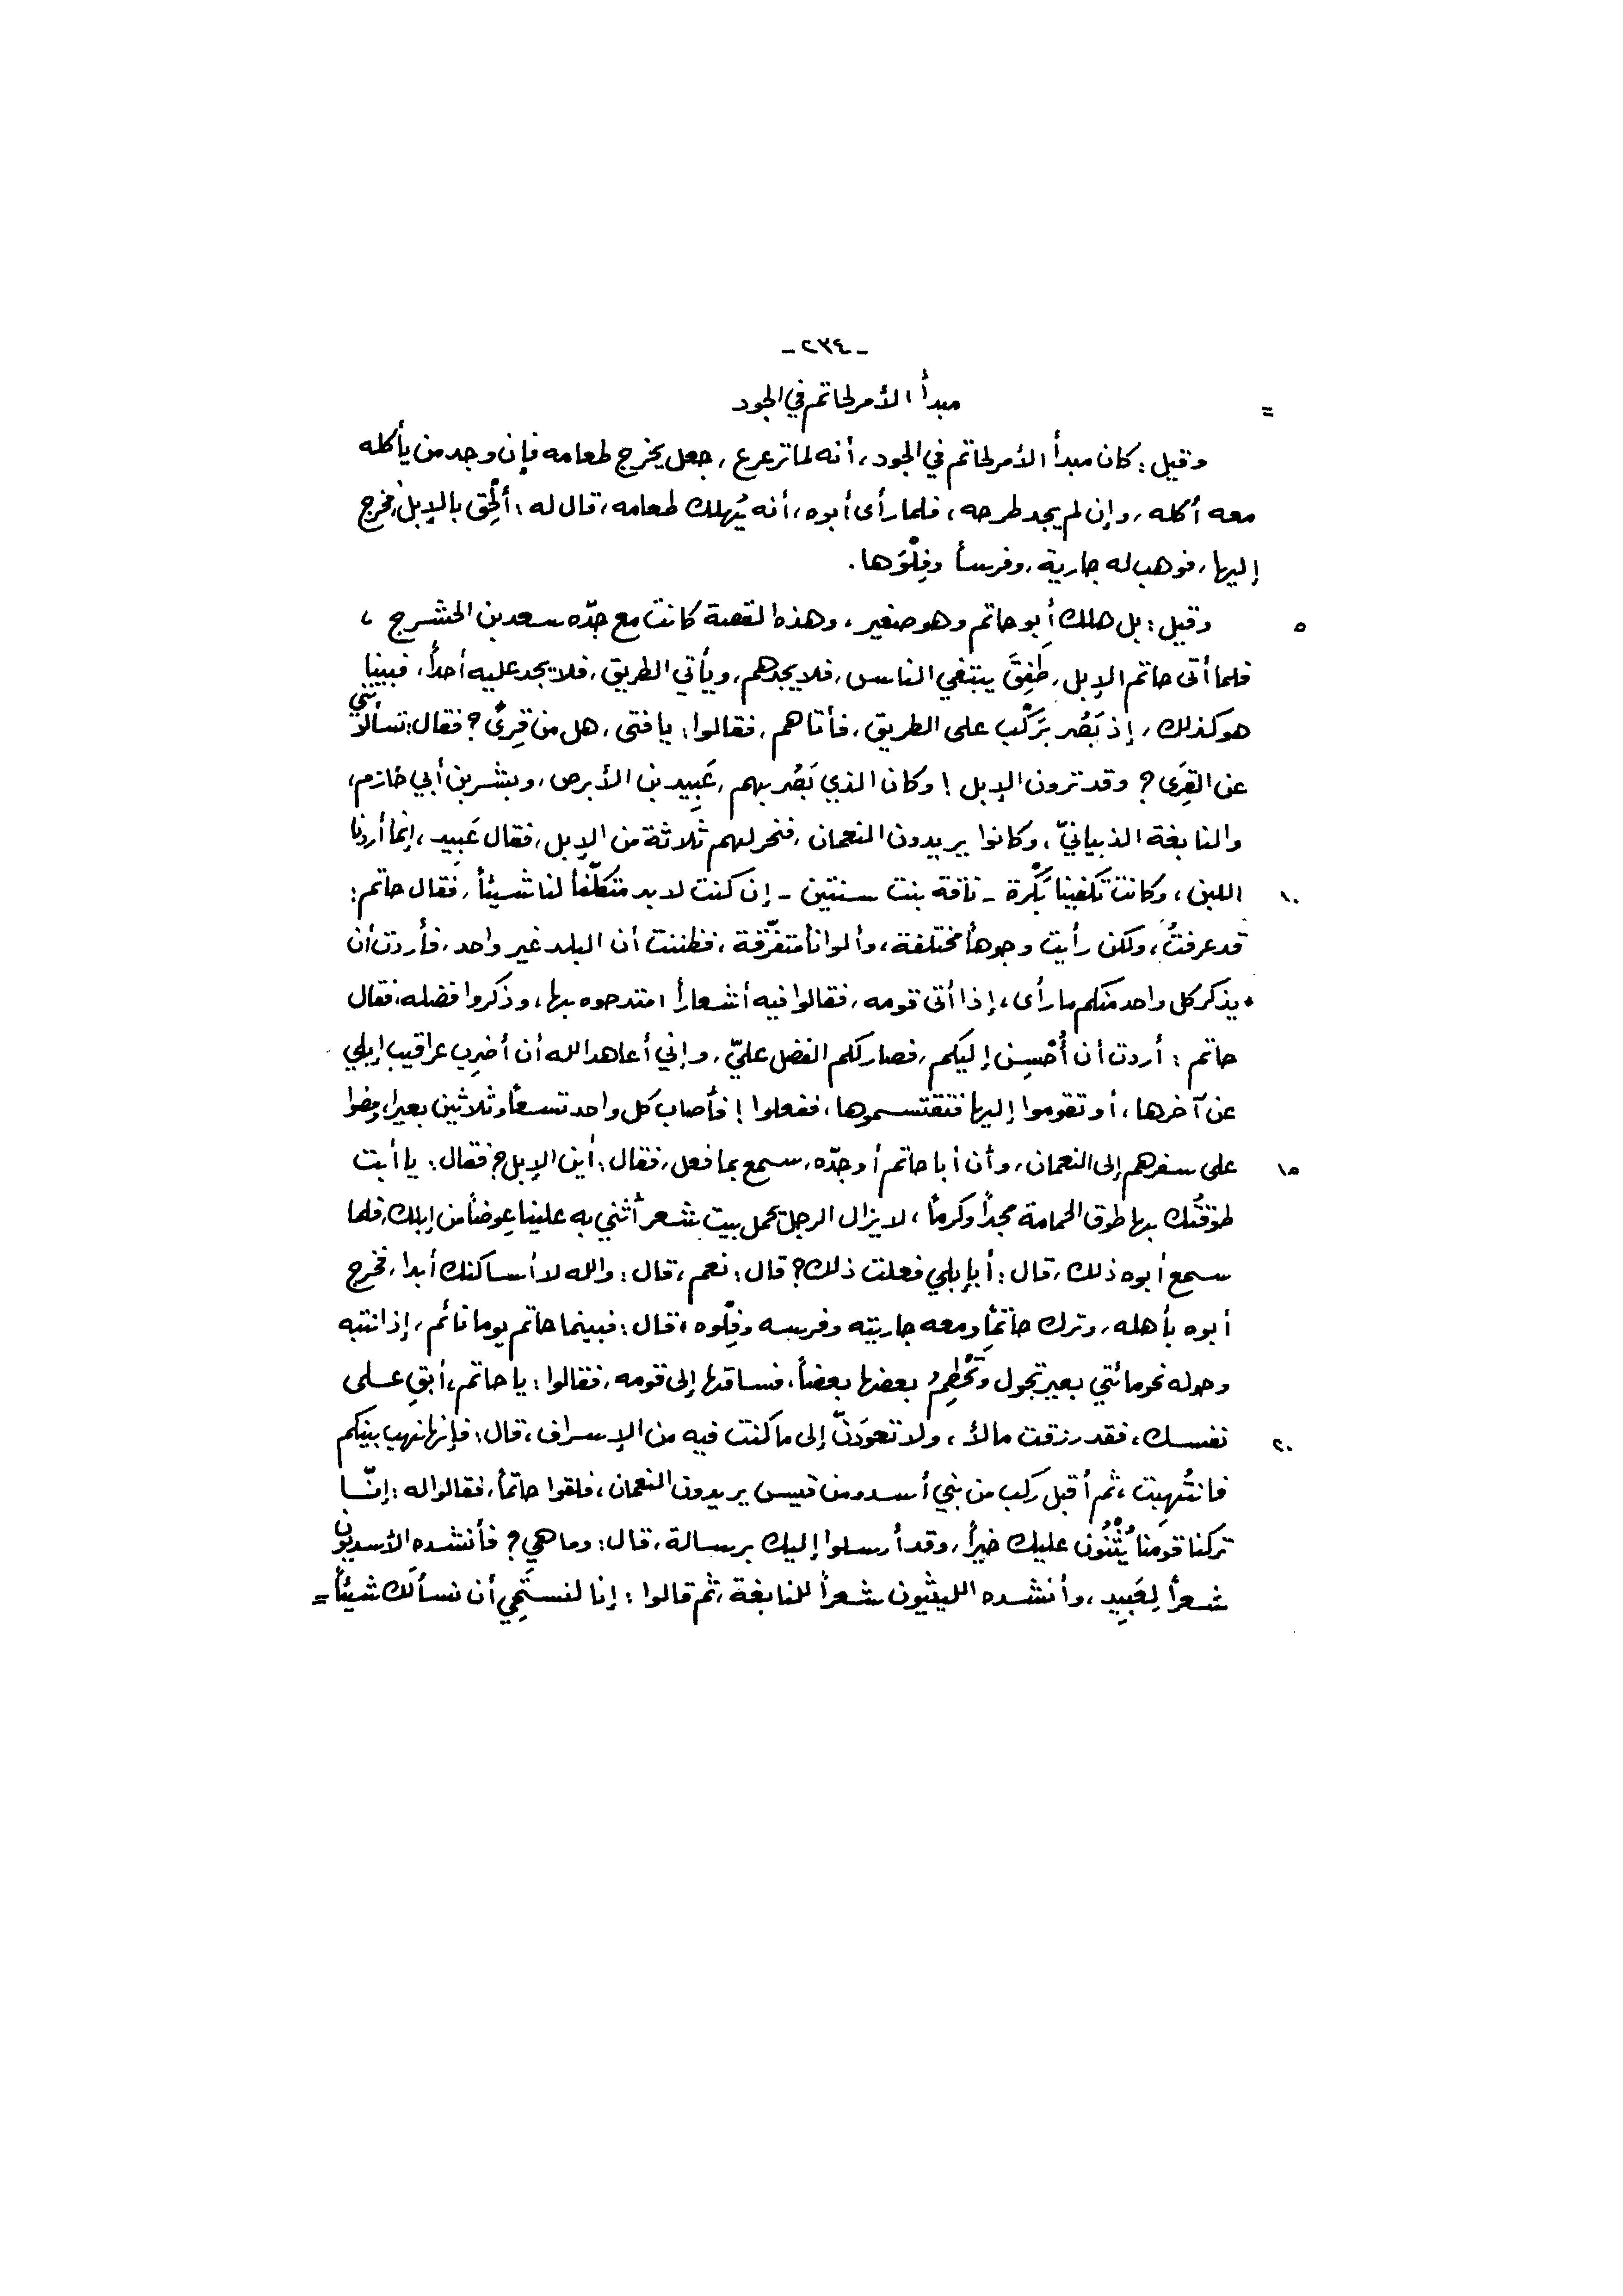 - ٢٣٤ -
= مبدأ الأمر لحاتم في الجود
وقيل : كان مبدأ الأمر لحاتم في الجود ، أنه لما ترعرع ، جعل يخرج طعامه فإن وجد من يأكله
معه أكله ، وإن لم يجد طرحه ، فلما رأى أبوه ، أنه يُهلك طعامه ، قال له : ألْحِق بالإبل ، فخرج
إليها ، فوهب له جارية ، وفرساً وفِلْوَها .
٥ وقيل : بل هلك أبو حاتم وهو صغير ، وهذه القصة كانت مع جدّه سعد بن الحشرج ،
فلما أتى حاتم الإبل ، طَفِقَ يبتغي الناس ، فلا يجدهم ، ويأتي الطريق ، فلا يجد عليه أحداً ، فبينا
هو كذلك ، إذ بَصُر برَكْب على الطريق ، فأتاهم ، فقالوا : يا فتى ، هل من قِرىً ؟ فقال : تسألوني
عن القِرَى ؟ وقد ترون الإبل ! وكان الذي بَصُر بهم ، عَبِيد بن الأبرص ، وبشر بن أبي خازم ،
والنابغة الذبيانيّ ، وكانوا يريدون النعمان ، فنحر لهم ثلاثة من الإبل ، فقال عَبِيد ، إنما أردنا
١٠ اللبن ، وكانت تكفينا بَكْرة - ناقة بنت سنتين - إن كنت لا بد متكلّفاً لنا شيئاً ، فقال حاتم :
قد عرفتُ ، ولكن رأيت وجوهاً مختلفة ، وألواناً متفرّقة ، فظننت أن البلد غير واحد ، فأردت أن
يذكر كل واحد منكم ما رأى ، إذا أتى قومه ، فقالوا فيه أشعاراً امتدحوه بها ، وذكروا فضله ، فقال
حاتم : أردت أن أُحْسِن إليكم ، فصار لكم الفضل عليّ ، وإني أعاهد الله أن أضرِب عراقيب إبلي
عن آخرها ، أو تقوموا إليها فتقتسموها ، ففعلوا ! فأصاب كل واحد تسعاً وثلاثين بعيرا ، ومضوا
١٥ على سفرهم إلى النعمان ، وأن أبا حاتم أو جدّه ، سمع بما فعل ، فقال : أين الإبل ؟ فقال : يا أبت
طوّقتُك بها طوق الحمامة مجداً وكرماً ، لا يزال الرجل يحمل بيت شعر أثني به علينا عِوضاً من إبلك ، فلما
سمع أبوه ذلك ، قال : أبإبلي فعلت ذلك ؟ قال : نعم ، قال : والله لا أساكنك أبدا ، فخرج
أبوه بأهله ، وترك حاتماً ومعه جاريته وفرسه وفِلْوه ، قال : فبينما حاتم يوما نائم ، إذ انتبه
وحوله نحو مائتي بعير تجول وتَحْطِمُ بعضها بعضاً ، فساقها إلى قومه ، فقالوا : يا حاتم ، أبقِ على
٢٠ نفسك ، فقد رزقت مالاً ، ولا تعودَنّ إلى ما كنت فيه من الإسراف ، قال : فإنها نهب بينكم
فانتُهِبت ، ثم أقبل ركب من بني أسد ومن قيس يريدون النعمان ، فلقوا حاتماً ، فقالوا له : إنّا
تركنا قومَنا يُثْنُون عليك خيراً ، وقد أرسلوا إليك برسالة ، قال : وما هي ؟ فأنشده الأسديون
شعراً لِعَبِيد ، وأنشده الليثيون شعراً للنابغة ، ثم قالوا : إنا لنستَحِي أن نسألَك شيئاً =